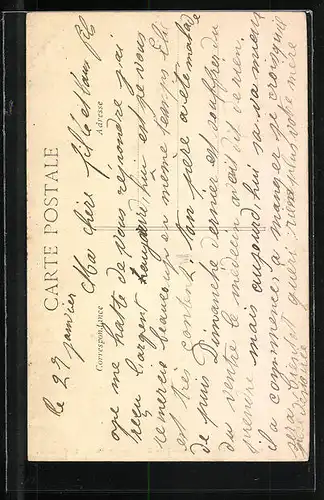 CARTE POSTALE
Correspondance Adresse
le 29 janvier
Ma chère fille et
me hatte de vous répondre j'ai
reçu l'argent et je vous
remerci beaucoup en même temps
est très contente ton père a été malade
de puis Dimanche dernier est souffrer du
du ventre le médecin avait dit de rien
mais aujourd'hui sa va mieux
il a commencé a manger je crois qu'il
sera bientôt guéri rien plus votre mère